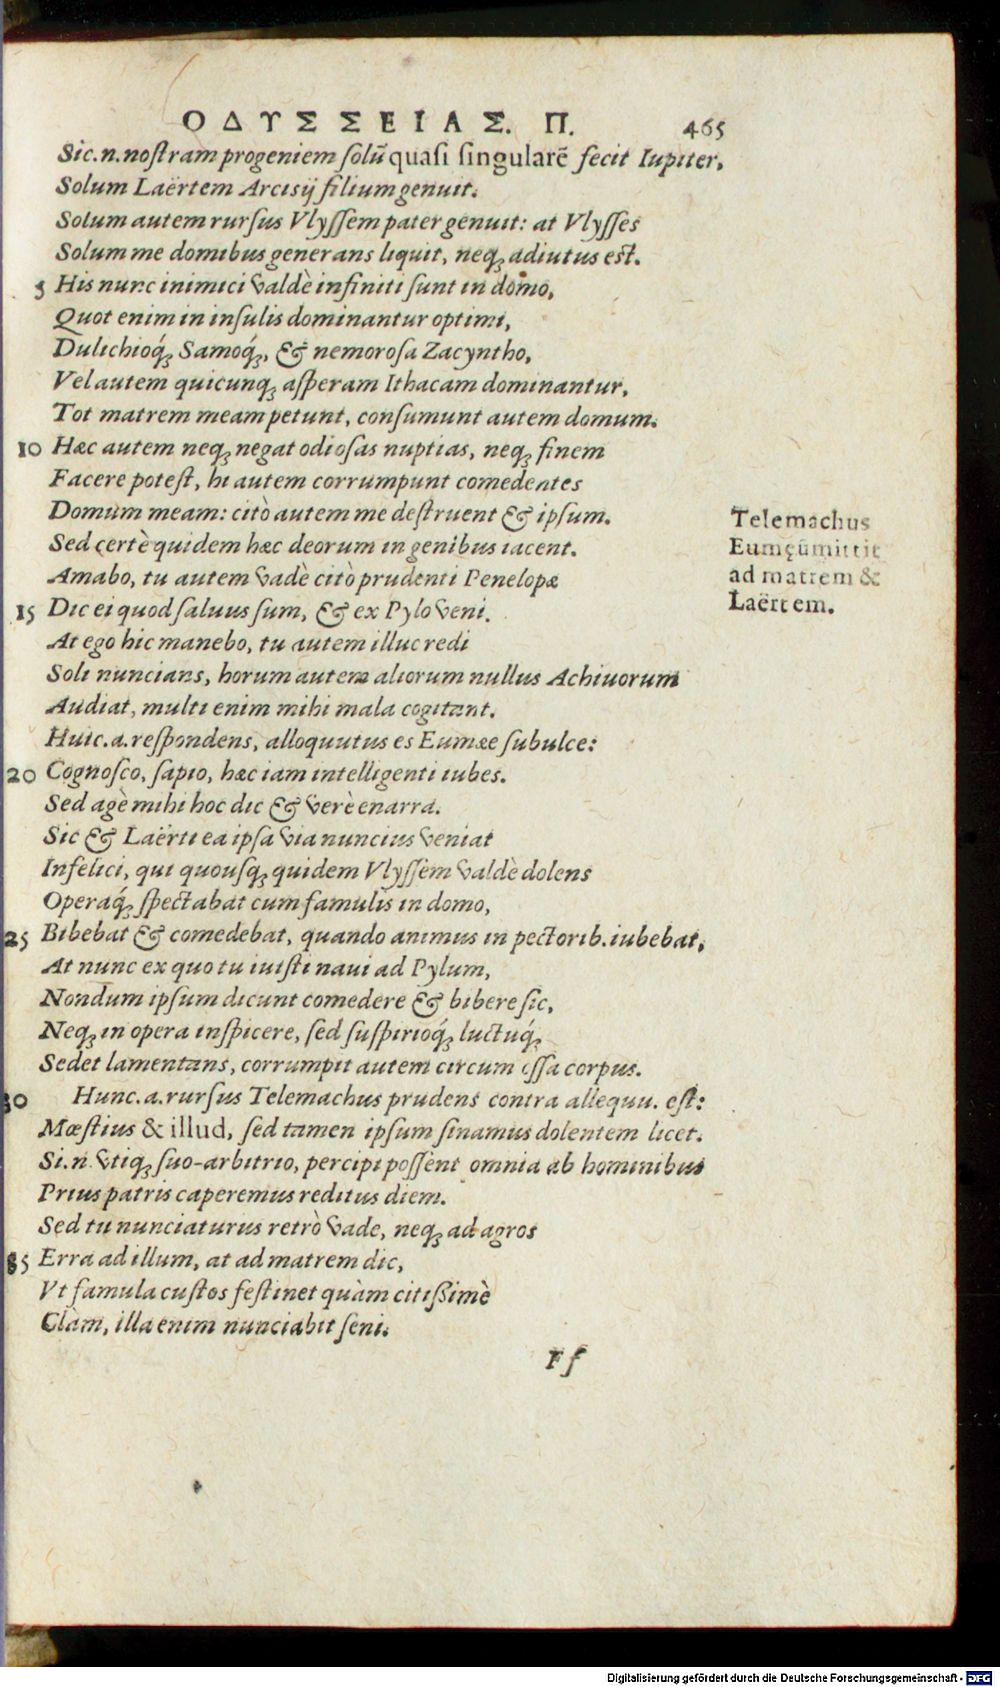 ΟΔΥΣΣΕΙΑΣ. Π. 465
Sic.n.noſtram progeniem ſolū quaſi ſingularē fecit Iupiter,
Solum Laërtem Arcisÿ filium genuit.
Solum autem rurſus Vlyſſem pater genuit: at Vlyſſes
Solum me domibus generans liquit, neq; adiutus eſt.
5 His nunc inimici valdè infiniti ſunt in domo,
Quot enim in inſulis dominantur optimi,
Dulichioq́;, Samoq́;, & nemoroſa Zacyntho,
Vel autem quicunq; aſperam Ithacam dominantur,
Tot matrem meam petunt, conſumunt autem domum.
10 Hæc autem neq; negat odioſas nuptias, neq; finem
Facere poteſt, hi autem corrumpunt comedentes
Domum meam: citò autem me deſtruent & ipſum.
Sed certè quidem hæc deorum in genibus iacent.
Amabo, tu autem vadè citò prudenti Penelopæ
15 Dic ei quod ſaluus ſum, & ex Pylo veni.
At ego hic manebo, tu autem illuc redi
Soli nuncians, horum autem aliorum nullus Achiuorum
Audiat, multi enim mihi mala cogitant.
Huic.a.reſpondens, alloquutus es Eumæe ſubulce:
20 Cognoſco, ſapio, hæc iam intelligenti iubes.
Sed agè mihi hoc dic & verè enarra.
Sic & Laërti ea ipſa via nuncius veniat
Infelici, qui quouſq; quidem Vlyſſem valdè dolens
Operaq́; ſpectabat cum famulis in domo,
25 Bibebat & comedebat, quando animus in pectorib. iubebat,
At nunc ex quo tu iuiſti naui ad Pylum,
Nondum ipſum dicunt comedere & bibere ſic,
Neq; in opera inſpicere, ſed ſuſpirioq́; luctuq́;
Sedet lamentans, corrumpit autem circum oſſa corpus.
30 Hunc.a.rurſus Telemachus prudens contra allequu. eſt:
Mœſtius & illud, ſed tamen ipſum ſinamus dolentem licet.
Si.n.vtiq; ſuo-arbitrio, percipi poſſent omnia ab hominibus
Prius patris caperemus reditus diem.
Sed tu nunciaturus retrò vade, neq; ad agros
35 Erra ad illum, at ad matrem dic,
Vt famula cuſtos feſtinet quàm citißimè
Clàm, illa enim nunciabit ſeni.
Ff
Telemachus
Eumęū mittit
ad matrem &
Laërtem.
Digitalisierung gefördert durch die Deutsche Forschungsgemeinschaft - DFG